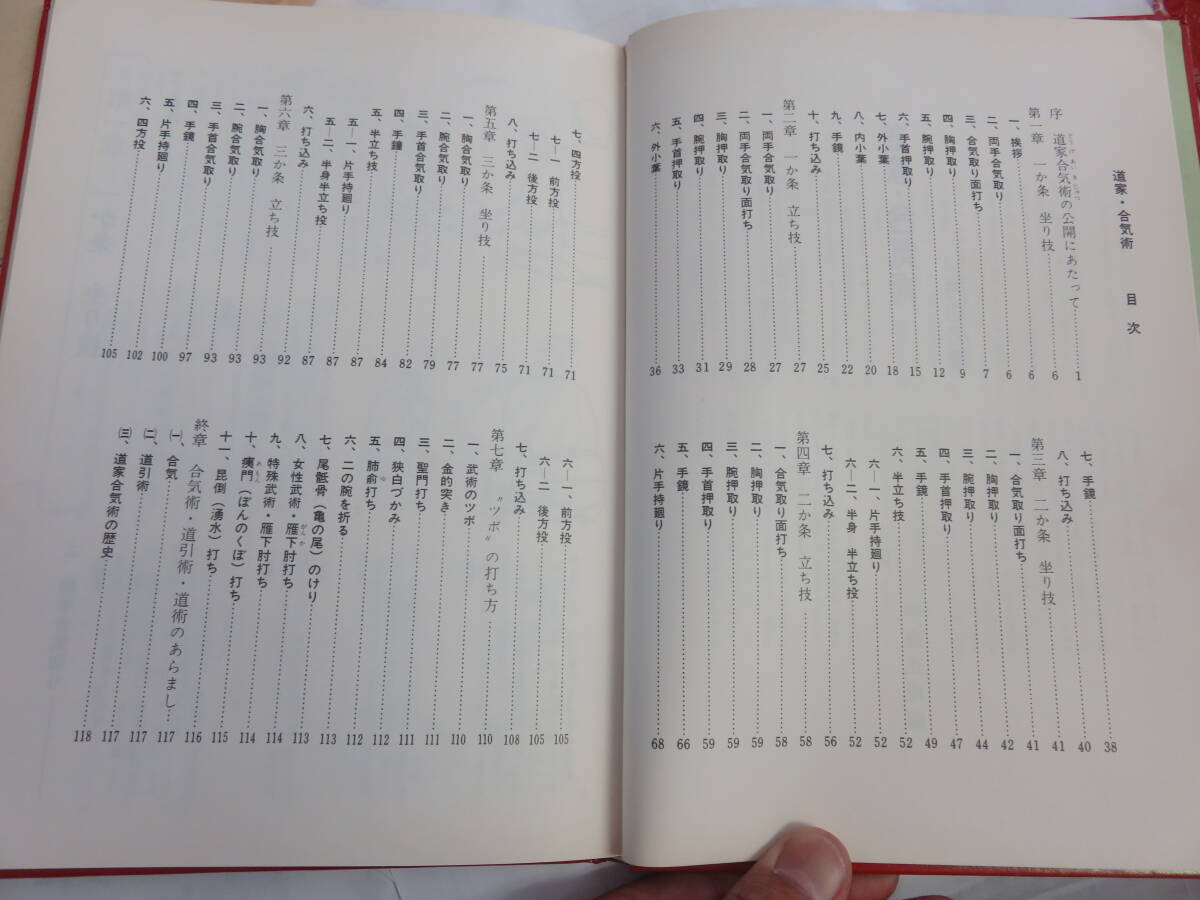 道家・合気術　目次
序　道家合気術の公開にあたって……1
どうけあいきじゅつ
第一章　一か条　坐り技……6
一、挨拶……6
二、両手合気取り……7
三、合気取り面打ち……9
四、胸押取り……12
五、腕押取り……15
六、手首押取り……18
七、外小葉……20
八、内小葉……22
九、手鏡……25
十、打ち込み……27
第二章　一か条　立ち技……27
一、両手合気取り……28
二、両手合気取り面打ち……29
三、胸押取り……31
四、腕押取り……33
五、手首押取り……36
六、外小葉
七、手鏡……38
八、打ち込み……40
第三章　二か条　坐り技……41
一、合気取り面打ち……41
二、胸押取り……42
三、腕押取り……44
四、手首押取り……47
五、手鏡……49
六、半立ち技……52
六―一、片手持廻り……52
六―二、半身　半立ち投……52
七、打ち込み……56
第四章　二か条　立ち技……58
一、合気取り面打ち……58
二、胸押取り……59
三、腕押取り……59
四、手首押取り……59
五、手鏡……66
六、片手持廻り……68
七、四方投……71
七―一　前方投……71
七―二　後方投……71
八、打ち込み……75
第五章　三か条　坐り技……77
一、胸合気取り……77
二、腕合気取り……79
三、手首合気取り……82
四、手鐘……84
五、半立ち技……87
五―一、片手持廻り……87
五―二、半身半立ち投……87
六、打ち込み……92
第六章　三か条　立ち技……93
一、胸合気取り……93
二、腕合気取り……93
三、手首合気取り……97
四、手鏡……100
五、片手持廻り……102
六、四方投……105
六―一、前方投……105
六―二、後方投……105
七、打ち込み……108
第七章　〝ツボ〟の打ち方……110
一、武術のツボ……110
二、金的突き……111
三、聖門打ち……111
四、狭白づかみ……112
五、肺俞打ち……112
ゆ
六、二の腕を折る……113
七、尾骶骨（亀の尾）のけり……113
八、女性武術・雁下肘打ち……114
がんか
九、特殊武術・雁下肘打ち……114
十、瘂門（ぼんのくぼ）打ち……115
あもん
十一、昆倒（湧水）打ち……116
終章　合気術・道引術・道術のあらまし……117
㈠、合気……117
㈡、道引術……117
㈢、道家合気術の歴史……118